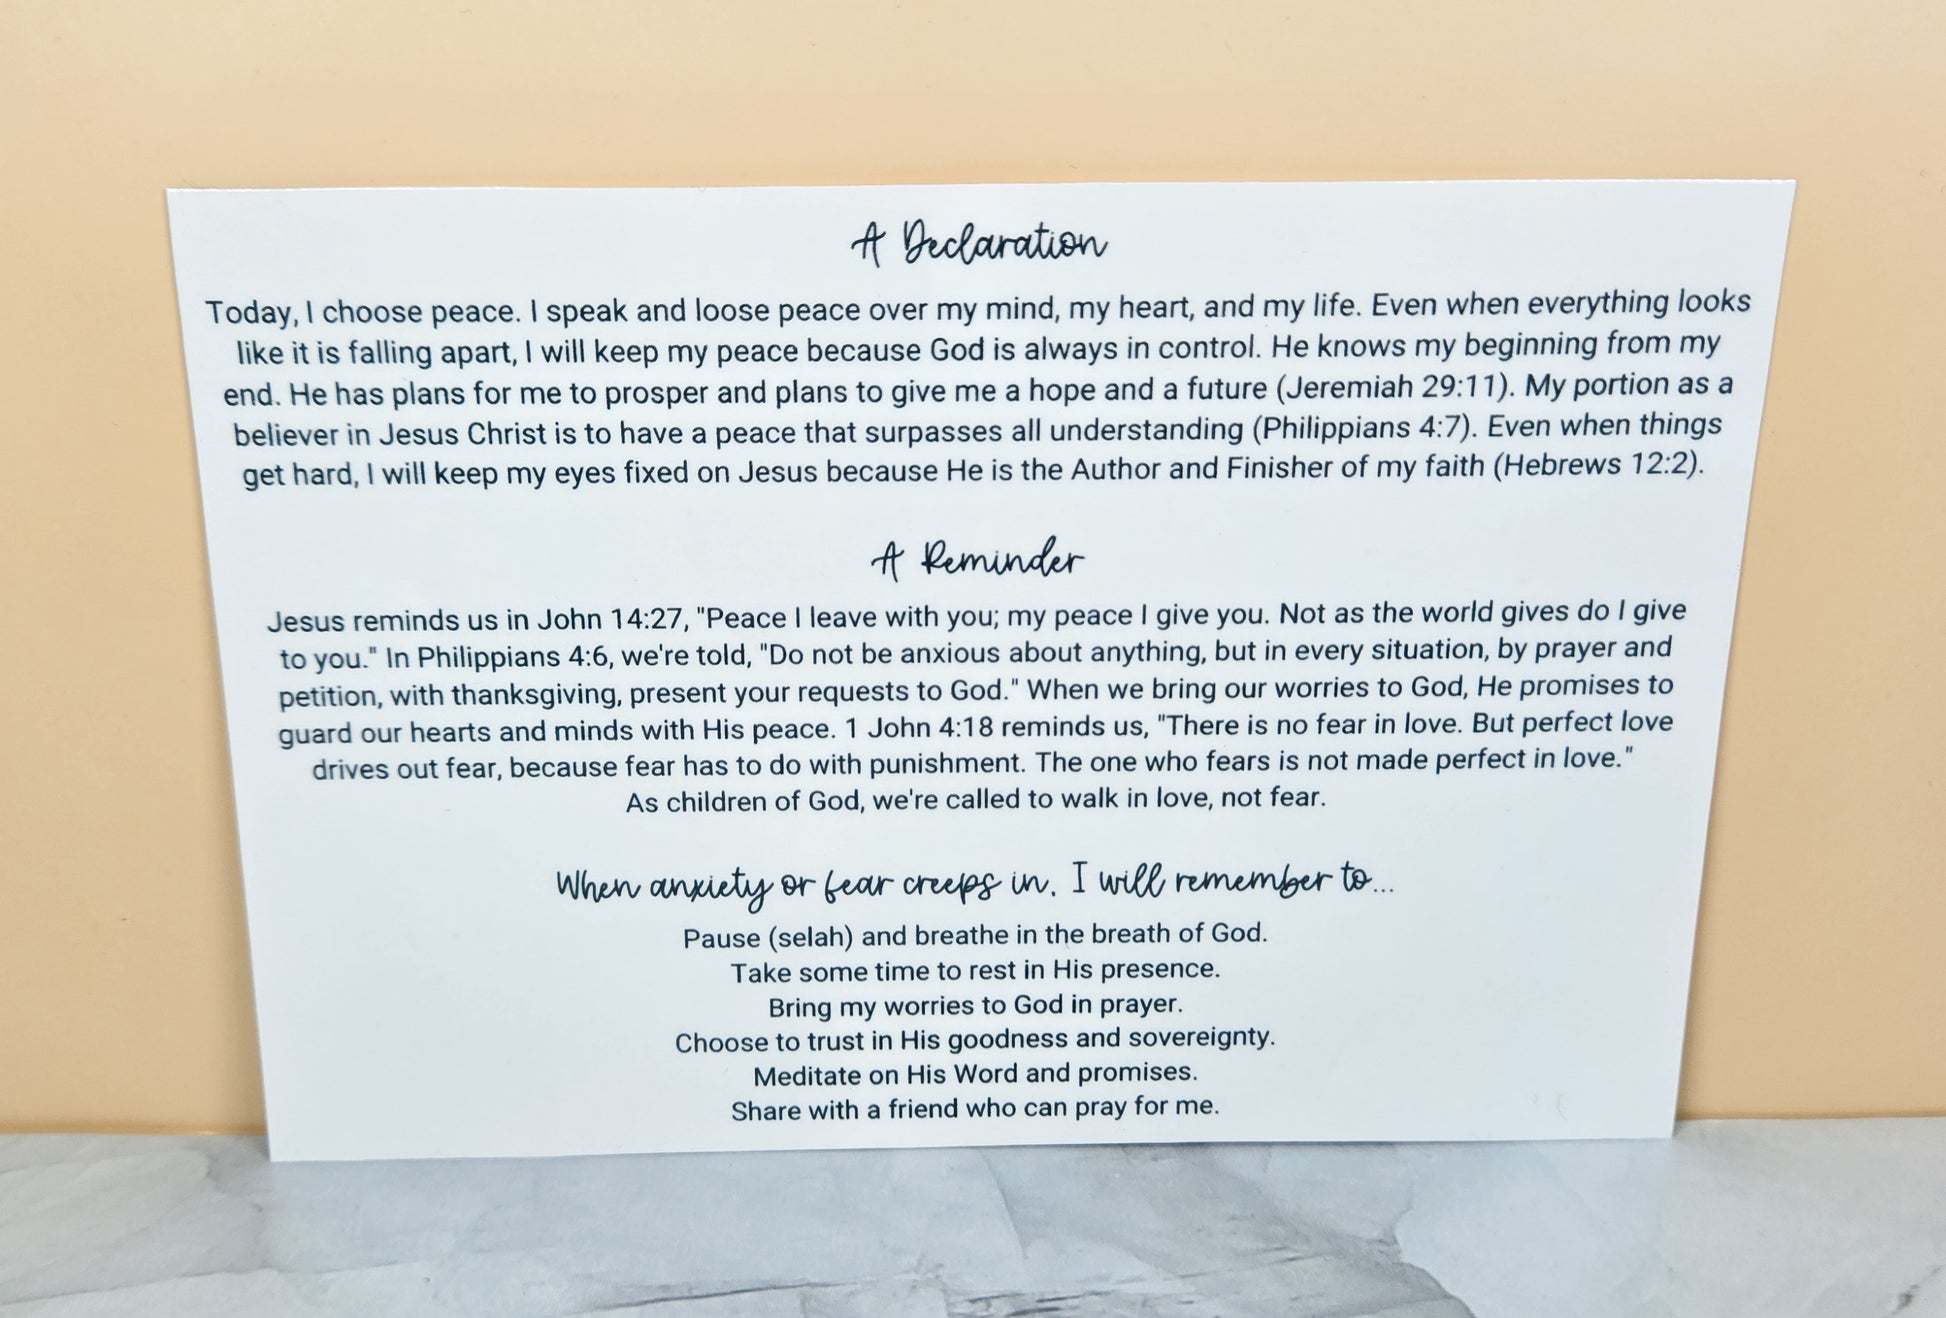 A Declaration
Today, I choose peace. I speak and loose peace over my mind, my heart, and my life. Even when everything looks
like it is falling apart, I will keep my peace because God is always in control. He knows my beginning from my
end. He has plans for me to prosper and plans to give me a hope and a future (Jeremiah 29:11). My portion as a
believer in Jesus Christ is to have a peace that surpasses all understanding (Philippians 4:7). Even when things
get hard, I will keep my eyes fixed on Jesus because He is the Author and Finisher of my faith (Hebrews 12:2).
A Reminder
Jesus reminds us in John 14:27, "Peace I leave with you; my peace I give you. Not as the world gives do I give
to you." In Philippians 4:6, we're told, "Do not be anxious about anything, but in every situation, by prayer and
petition, with thanksgiving, present your requests to God." When we bring our worries to God, He promises to
guard our hearts and minds with His peace. 1 John 4:18 reminds us, "There is no fear in love. But perfect love
drives out fear, because fear has to do with punishment. The one who fears is not made perfect in love."
As children of God, we're called to walk in love, not fear.
When anxiety or fear creeps in, I will remember to...
Pause (selah) and breathe in the breath of God.
Take some time to rest in His presence.
Bring my worries to God in prayer.
Choose to trust in His goodness and sovereignty.
Meditate on His Word and promises.
Share with a friend who can pray for me.